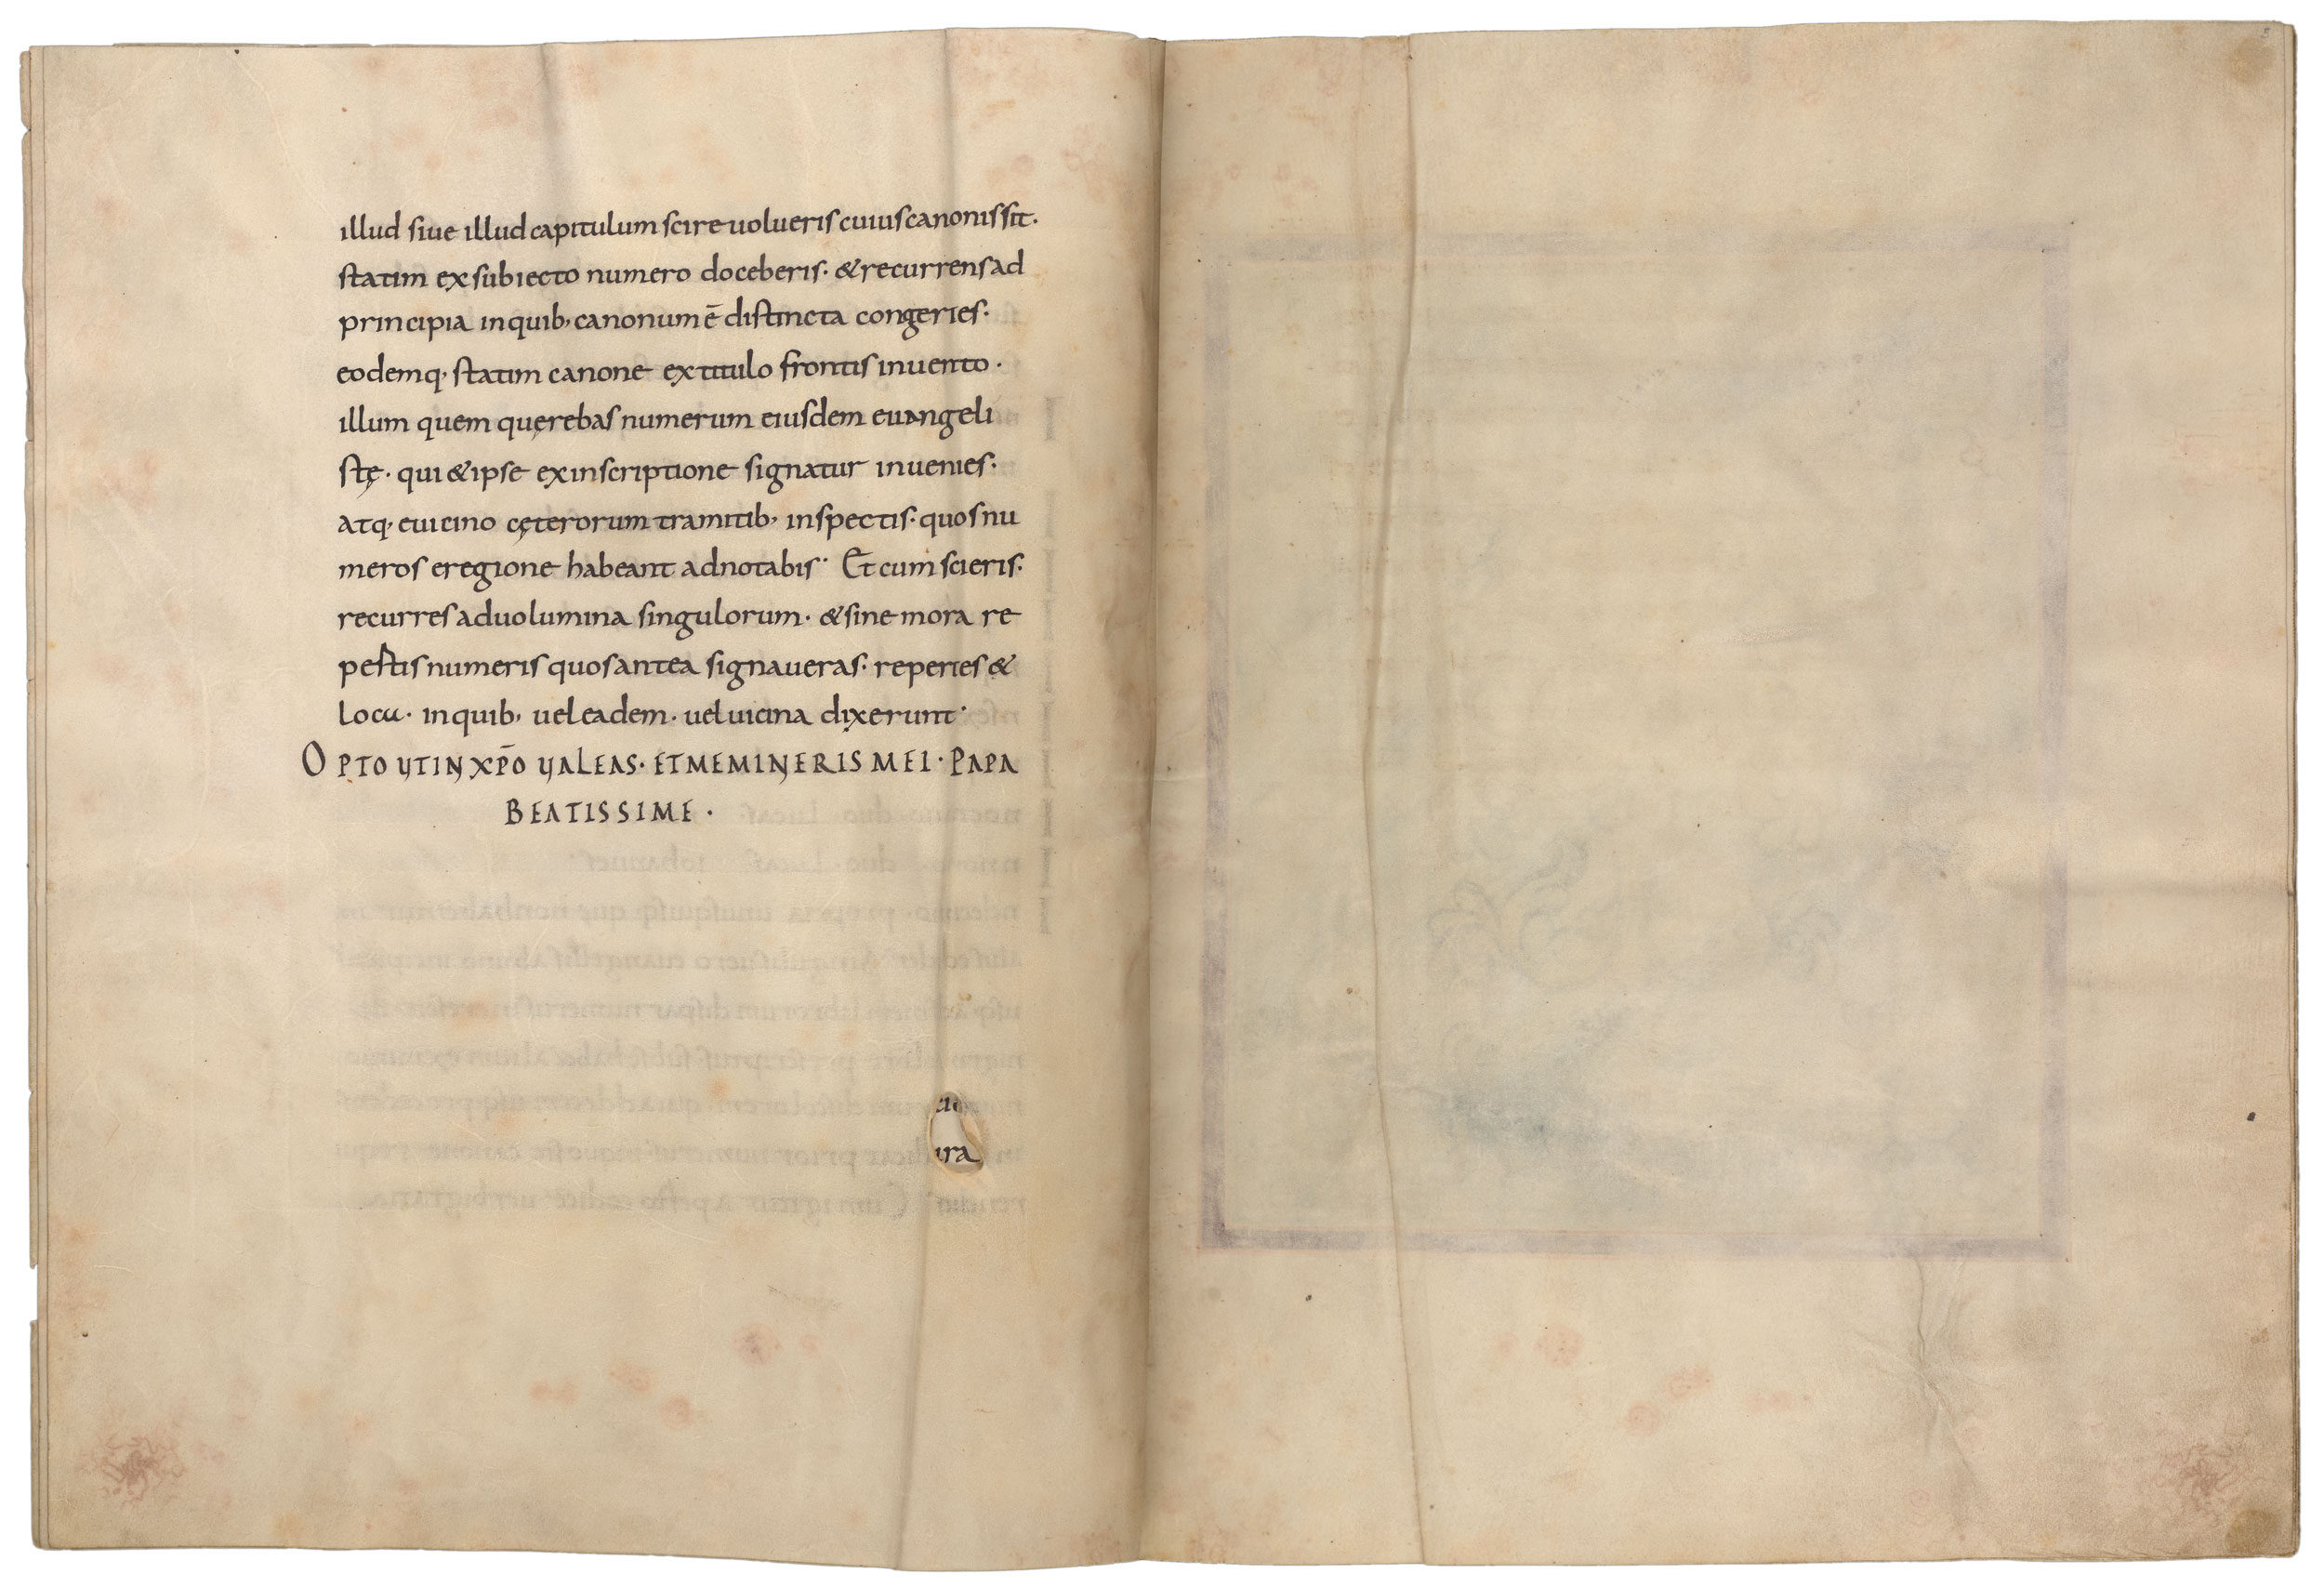 illud siue illud capitulum scire uolueris cuius canonis sit·
statim ex subiecto numero doceberis· & recurrens ad
principia in quib; canonum ē distincta congeries·
eodemq; statim canone ex titulo frontis inuento·
illum quem querebas numerum eiusdem euangeli
stę· qui & ipse ex inscriptione signatur inuenies·
atq; e uicino cęterorum tramitib; inspectis· quos nu
meros e regione habeant adnotabis· Et cum scieris·
recurres ad uolumina singulorum· & sine mora re
pestis numeris quos antea signaueras· reperies &
loca· in quib; uel eadem· uel uicina dixerunt·
OPTO UT IN XP̄O UALEAS· ET MEMINERIS MEI· PAPA
BEATISSIME·
ira